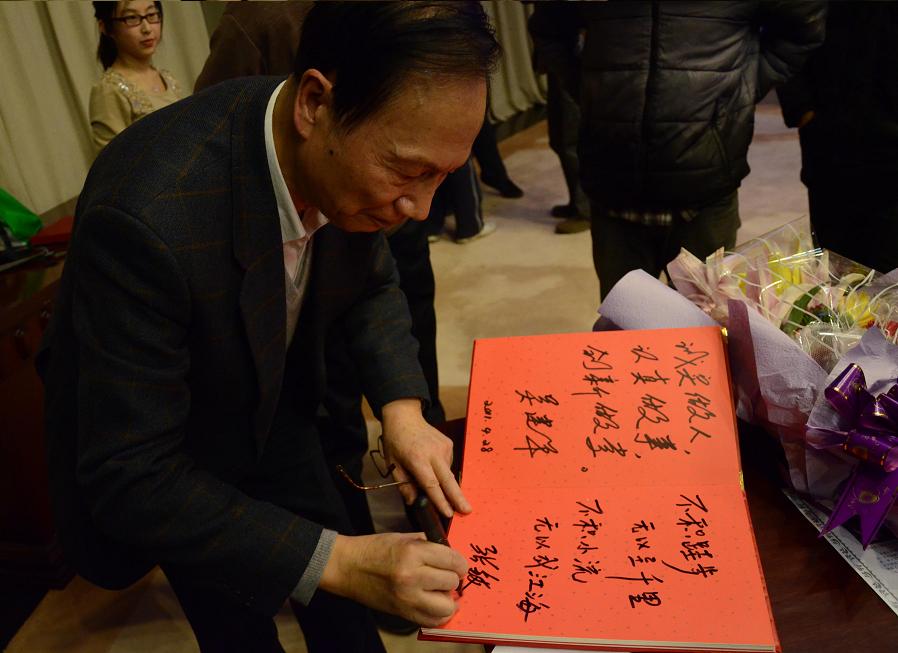 诚实做人,
认真做事,
创新做事。
吴建
2011.4.28
不积跬步
无以至千里
不积小流
无以成江海
张敏